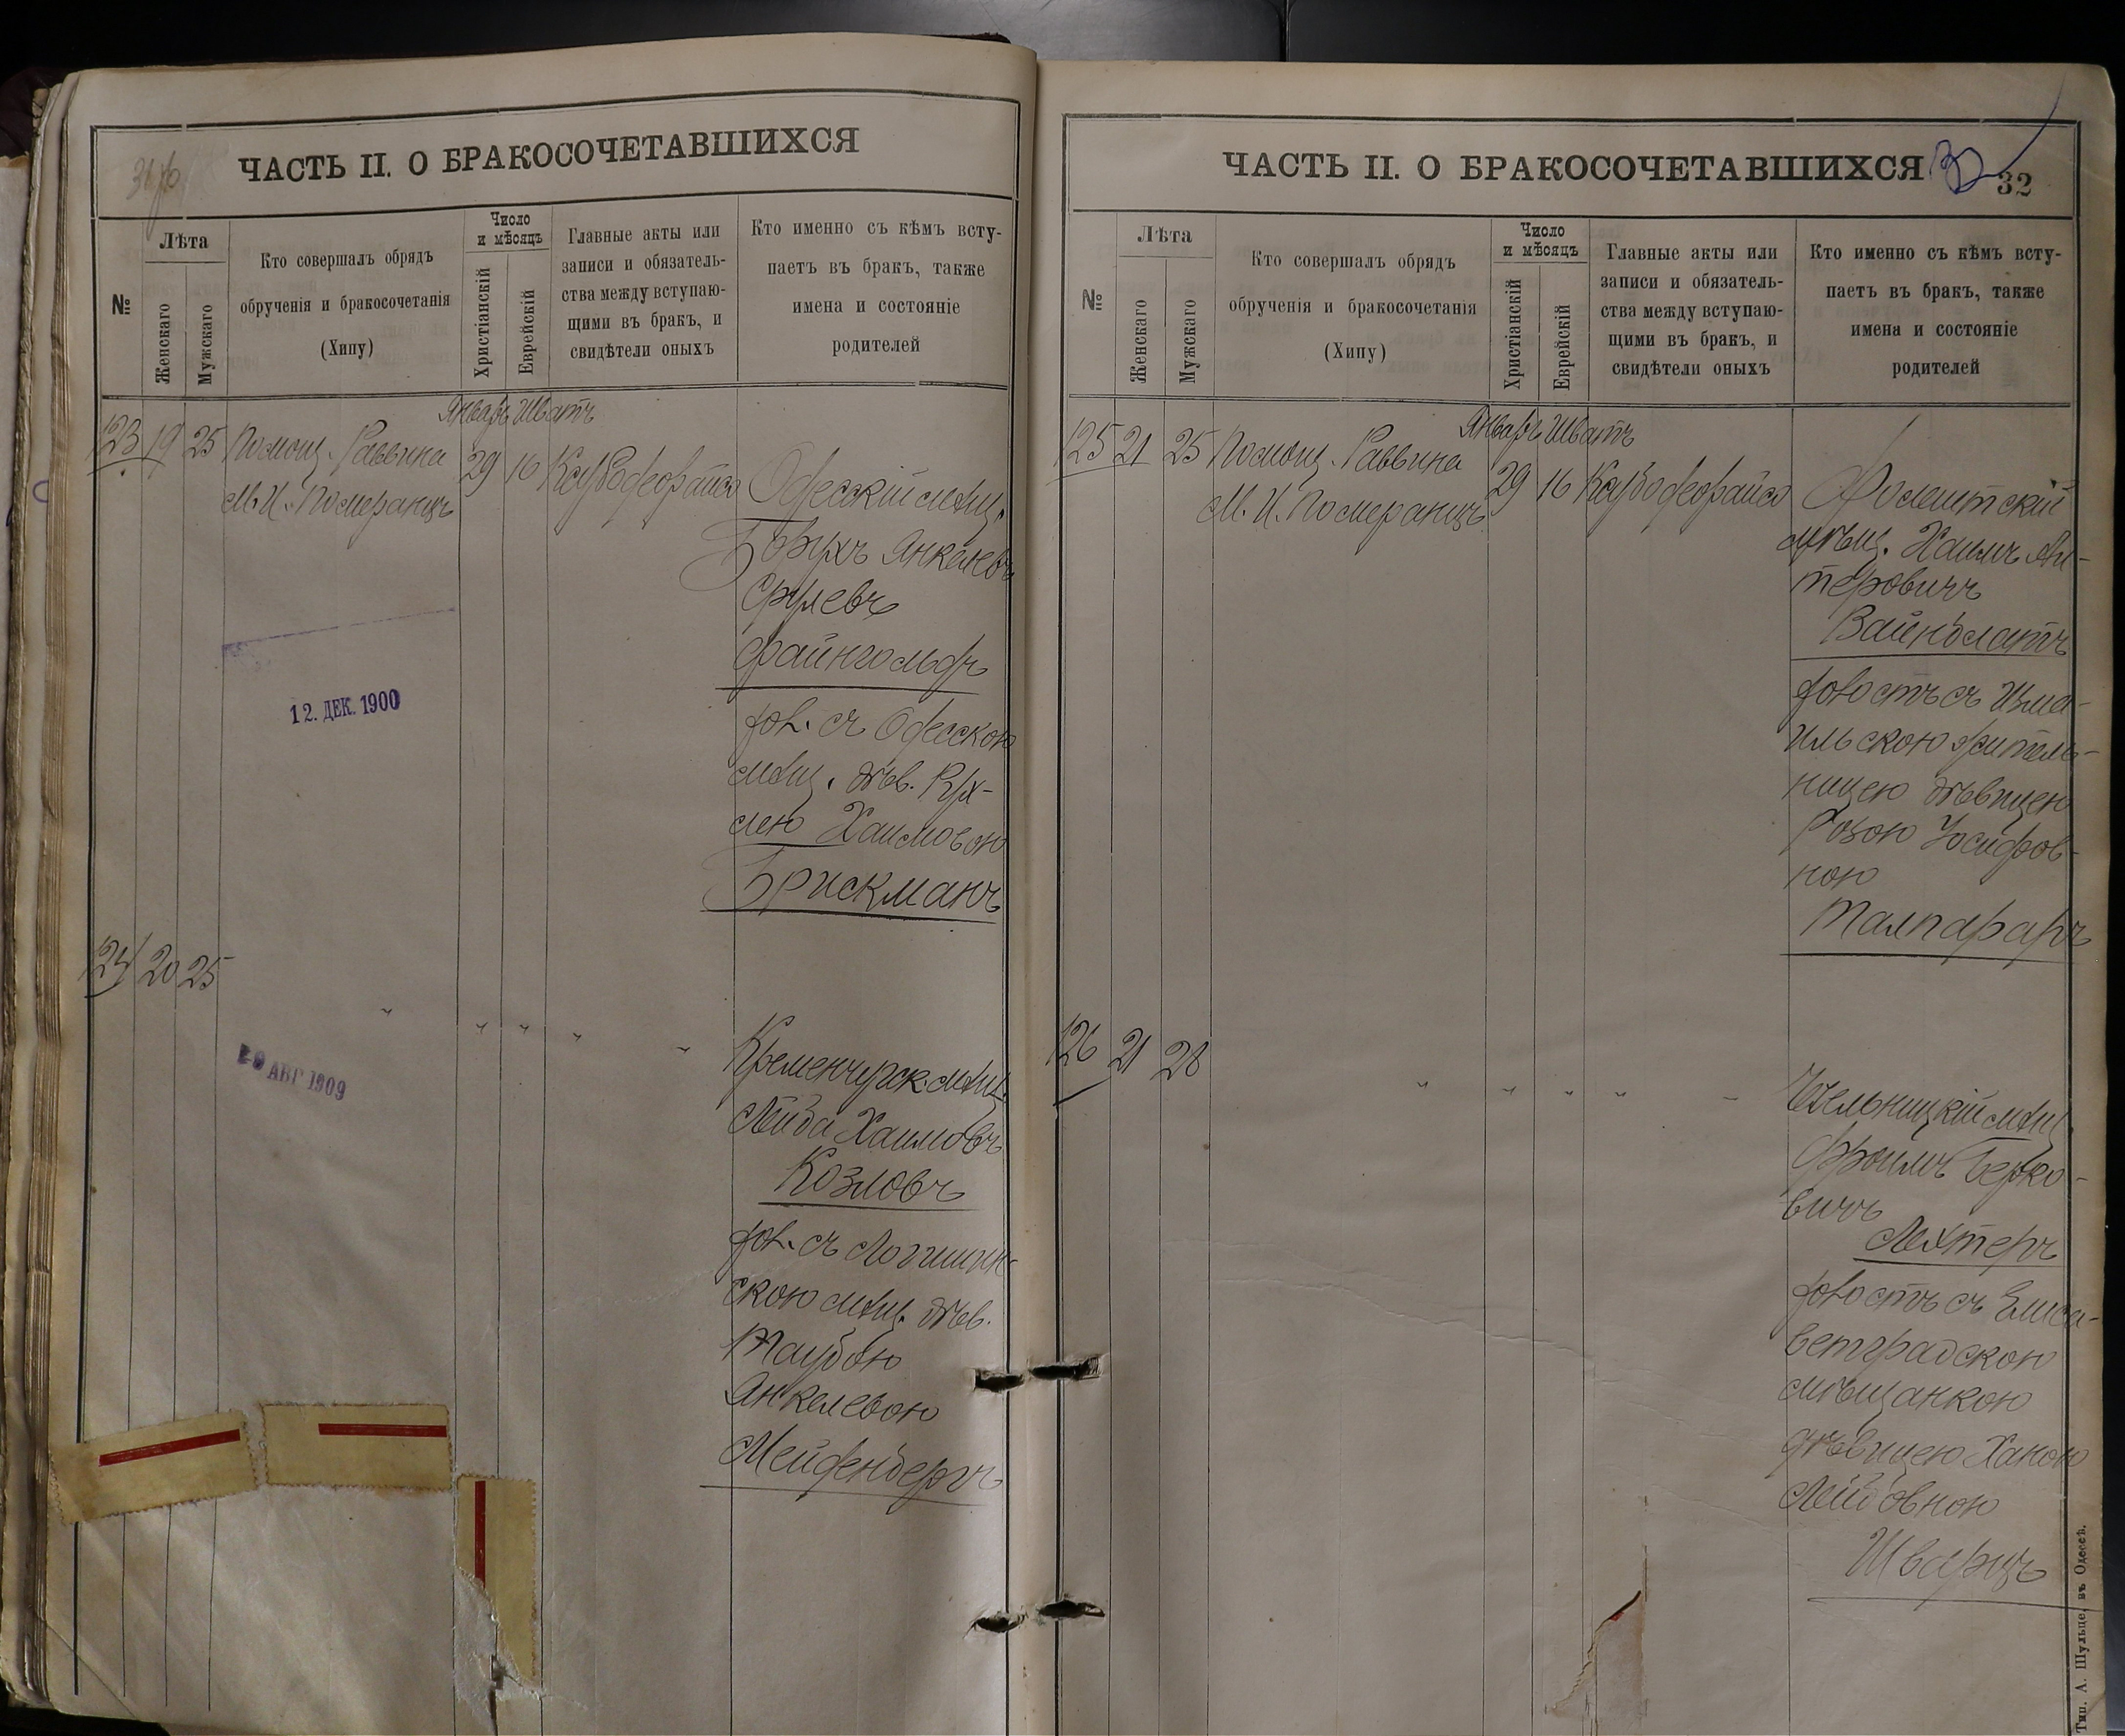 ЧАСТЬ II. О БРАКОСОЧЕТАВШИХСЯ
№
Лѣта
Женскаго
Мужскаго
Кто совершалъ обрядъ
обрученія и бракосочетанія
(Хипу)
Число
и мѣсяцъ
Христіанскій
Еврейскій
Главные акты или
записи и обязатель-
ства между вступаю-
щими въ бракъ, и
свидѣтели оныхъ
Кто именно съ кѣмъ всту-
паетъ въ бракъ, также
имена и состояніе
родителей
Январь Шватъ
123 19 25 Помощ. Раввина 29 16
М. И. Померанцъ
Одесскій мѣщ.
Борухъ Янкелевъ
Срулевъ
Файнгольдъ
12. ДЕК. 1900
дѣв. съ Одесскою
мѣщ. дѣв. Рух-
лею Хаимовою
Брискманъ
124 20 25 " " " " "
Кременчугск. мѣщ.
Лейба Хаимовъ
Козловъ
АВГ 1909
съ
скою мѣщ. дѣв.
Таубою
Янкелевою
Мейденбергъ
ЧАСТЬ II. О БРАКОСОЧЕТАВШИХСЯ
32
№
Лѣта
Женскаго
Мужскаго
Кто совершалъ обрядъ
обрученія и бракосочетанія
(Хипу)
Число
и мѣсяцъ
Христіанскій
Еврейскій
Главные акты или
записи и обязатель-
ства между вступаю-
щими въ бракъ, и
свидѣтели оныхъ
Кто именно съ кѣмъ всту-
паетъ въ бракъ, также
имена и состояніе
родителей
Январь Шватъ
125 21 25 Помощ. Раввина 29 16
М. И. Померанцъ
Фолештскій
мѣщ. Хаимъ Ан-
теровичъ
Вайнблатъ
холостъ съ Изма-
ильскою житель-
ницею дѣвицею
Розою Іосифов-
ною
Талпарарь
126 21 28 " " " " "
Хмельницкій мѣщ.
Фроимъ Берко-
вичъ
Лехтеръ
холостъ съ Елиса-
ветградскою
мѣщанкою
дѣвицею Ханою
Лейбовною
Шварцъ
Тип. А. Шульце, въ Одессѣ.